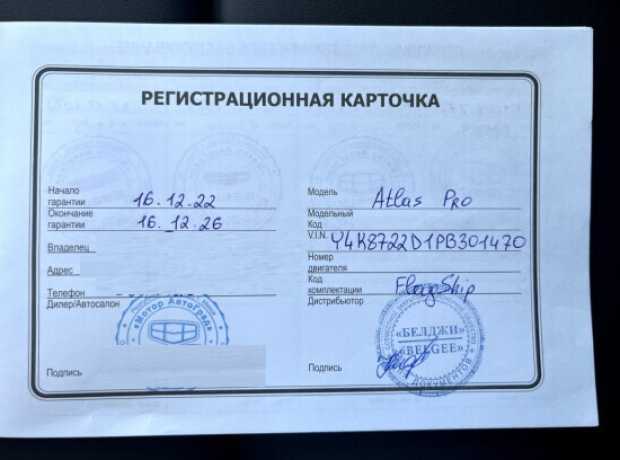 РЕГИСТРАЦИОННАЯ КАРТОЧКА
Начало гарантии 16.12.22
Окончание гарантии 16.12.26
Владелец
Адрес
Телефон
Дилер/Автосалон
«Мотор Автоград»
Подпись
Модель Atlas Pro
Модельный Код
V.I.N. Y4K8722D1PB301470
Номер двигателя
Код комплектации FlagShip
Дистрибьютор
«БЕЛДЖИ»
«BELGEE»
ДОКУМЕНТОВ
Подпись